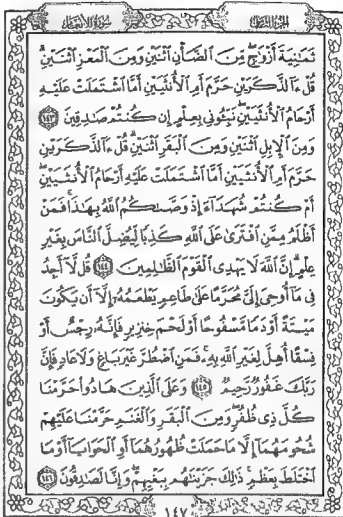 سُورَةُ الأَنْعَامِ
الجُزْءُ الثَّامِنُ
ثَمَٰنِيَةَ أَزْوَٰجٍ ۖ مِّنَ ٱلضَّأْنِ ٱثْنَيْنِ وَمِنَ ٱلْمَعْزِ ٱثْنَيْنِ ۗ
قُلْ ءَآلذَّكَرَيْنِ حَرَّمَ أَمِ ٱلْأُنثَيَيْنِ أَمَّا ٱشْتَمَلَتْ عَلَيْهِ
أَرْحَامُ ٱلْأُنثَيَيْنِ ۖ نَبِّـُٔونِى بِعِلْمٍ إِن كُنتُمْ صَٰدِقِينَ ١٤٣
وَمِنَ ٱلْإِبِلِ ٱثْنَيْنِ وَمِنَ ٱلْبَقَرِ ٱثْنَيْنِ ۗ قُلْ ءَآلذَّكَرَيْنِ
حَرَّمَ أَمِ ٱلْأُنثَيَيْنِ أَمَّا ٱشْتَمَلَتْ عَلَيْهِ أَرْحَامُ ٱلْأُنثَيَيْنِ ۖ
أَمْ كُنتُمْ شُهَدَآءَ إِذْ وَصَّىٰكُمُ ٱللَّهُ بِهَٰذَا ۚ فَمَنْ
أَظْلَمُ مِمَّنِ ٱفْتَرَىٰ عَلَى ٱللَّهِ كَذِبًا لِّيُضِلَّ ٱلنَّاسَ بِغَيْرِ
عِلْمٍ ۗ إِنَّ ٱللَّهَ لَا يَهْدِى ٱلْقَوْمَ ٱلظَّٰلِمِينَ ١٤٤ قُل لَّآ أَجِدُ
فِى مَآ أُوحِىَ إِلَىَّ مُحَرَّمًا عَلَىٰ طَاعِمٍ يَطْعَمُهُۥٓ إِلَّآ أَن يَكُونَ
مَيْتَةً أَوْ دَمًا مَّسْفُوحًا أَوْ لَحْمَ خِنزِيرٍ فَإِنَّهُۥ رِجْسٌ أَوْ
فِسْقًا أُهِلَّ لِغَيْرِ ٱللَّهِ بِهِۦ ۚ فَمَنِ ٱضْطُرَّ غَيْرَ بَاغٍ وَلَا عَادٍ فَإِنَّ
رَبَّكَ غَفُورٌ رَّحِيمٌ ١٤٥ وَعَلَى ٱلَّذِينَ هَادُوا۟ حَرَّمْنَا
كُلَّ ذِى ظُفُرٍ ۖ وَمِنَ ٱلْبَقَرِ وَٱلْغَنَمِ حَرَّمْنَا عَلَيْهِمْ
شُحُومَهُمَآ إِلَّا مَا حَمَلَتْ ظُهُورُهُمَآ أَوِ ٱلْحَوَايَآ أَوْ مَا
ٱخْتَلَطَ بِعَظْمٍ ۚ ذَٰلِكَ جَزَيْنَٰهُم بِبَغْيِهِمْ ۖ وَإِنَّا لَصَٰدِقُونَ ١٤٦
١٤٧